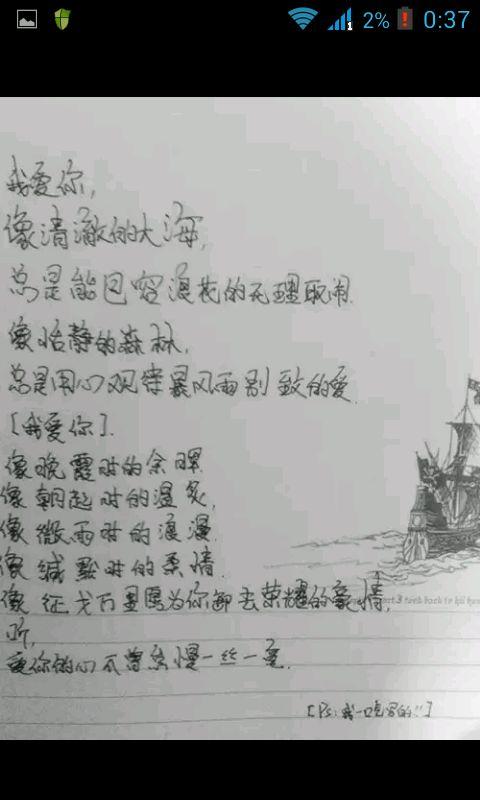 2% 0:37
我爱你,
像清澈的大海,
总是能包容浪花的无理取闹.
像恬静的森林,
总是用心观待暴风雨别致的爱.
[我爱你].
像晚霞时的余晖.
像朝起时的温炙,
像微雨时的浪漫.
像缄默时的柔情.
像征戈万里愿为你卸去荣耀的豪情,
所,
爱你的心不曾怠慢一丝一毫.
[Ps:我一口气写的!!]